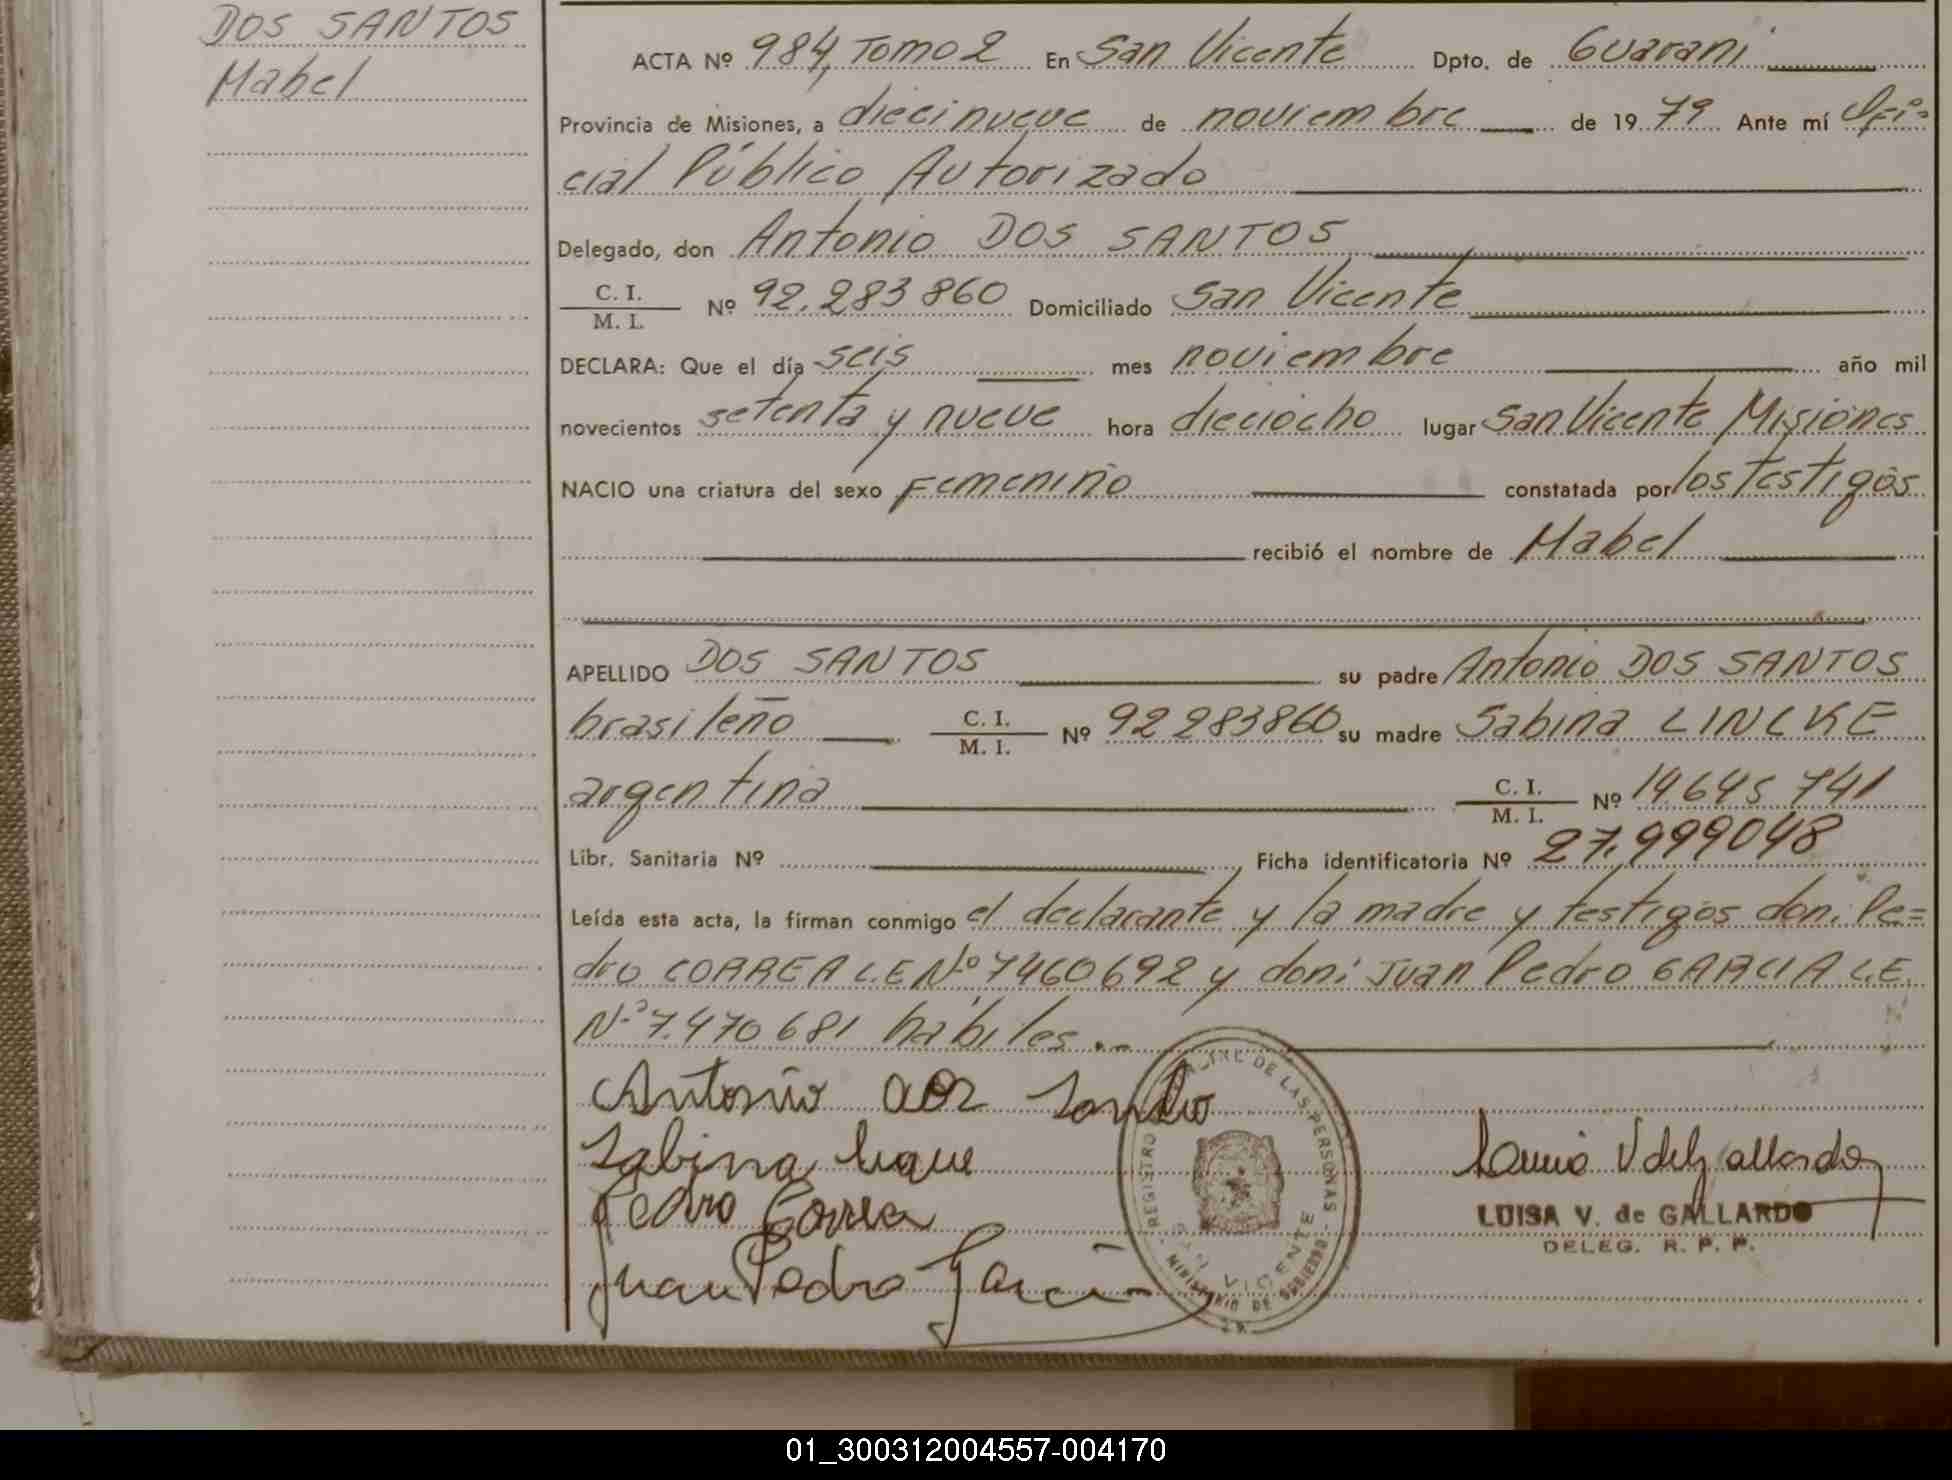 DOS SANTOS
Mabel
ACTA Nº 984, Tomo 2 En San Vicente Dpto. de Guarani
Provincia de Misiones, a diecinueve de noviembre de 1979 Ante mí Ofi=
cial Público Autorizado
Delegado, don Antonio DOS SANTOS
C. I.
M. I. Nº 92.283860 Domiciliado San Vicente
DECLARA: Que el día seis mes noviembre año mil
novecientos setenta y nueve hora dieciocho lugar San Vicente Misiones
NACIO una criatura del sexo Femenino constatada por los testigos
recibió el nombre de Mabel
APELLIDO DOS SANTOS su padre Antonio DOS SANTOS
brasileño C. I.
M. I. Nº 92283860 su madre Sabina LINCKE
argentina C. I.
M. I. Nº 14645741
Libr. Sanitaria Nº Ficha identificatoria Nº 27.999048
Leída esta acta, la firman conmigo el declarante y la madre y testigos don: Pe=
dro CORREA L.E Nº 7460692 y don: Juan Pedro GARCIA L.E.
Nº 7.470681 hábiles.-
Antonio dos Santo
Sabina
Pedro Correa
Juan Pedro Garcia
REGISTRO DE LAS PERSONAS
SAN VICENTE
MINISTERIO DE GOBIERNO
V de Gallardo
LUISA V. de GALLARDO
DELEG. R. P. P.
01_300312004557-004170